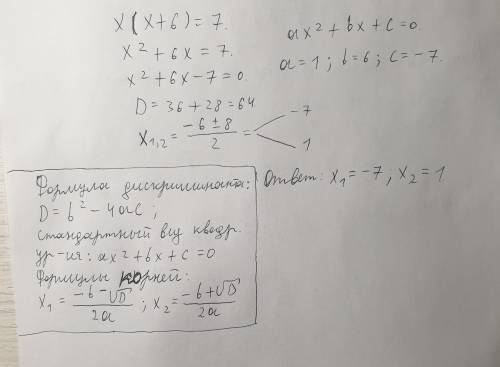 x(x+6)=7.
x²+6x=7.
x²+6x-7=0.
D=36+28=64
x₁,₂ = (-6±8)/2 = -7
1
ax²+bx+c=0.
a=1; b=6; c=-7.
Ответ: x₁=-7, x₂=1
Формула дискриминанта:
D=b²-4ac;
стандартный вид квадр.
ур-ия: ax²+bx+c=0
Формулы корней:
x₁ = (-b-√D)/2a ; x₂ = (-b+√D)/2a